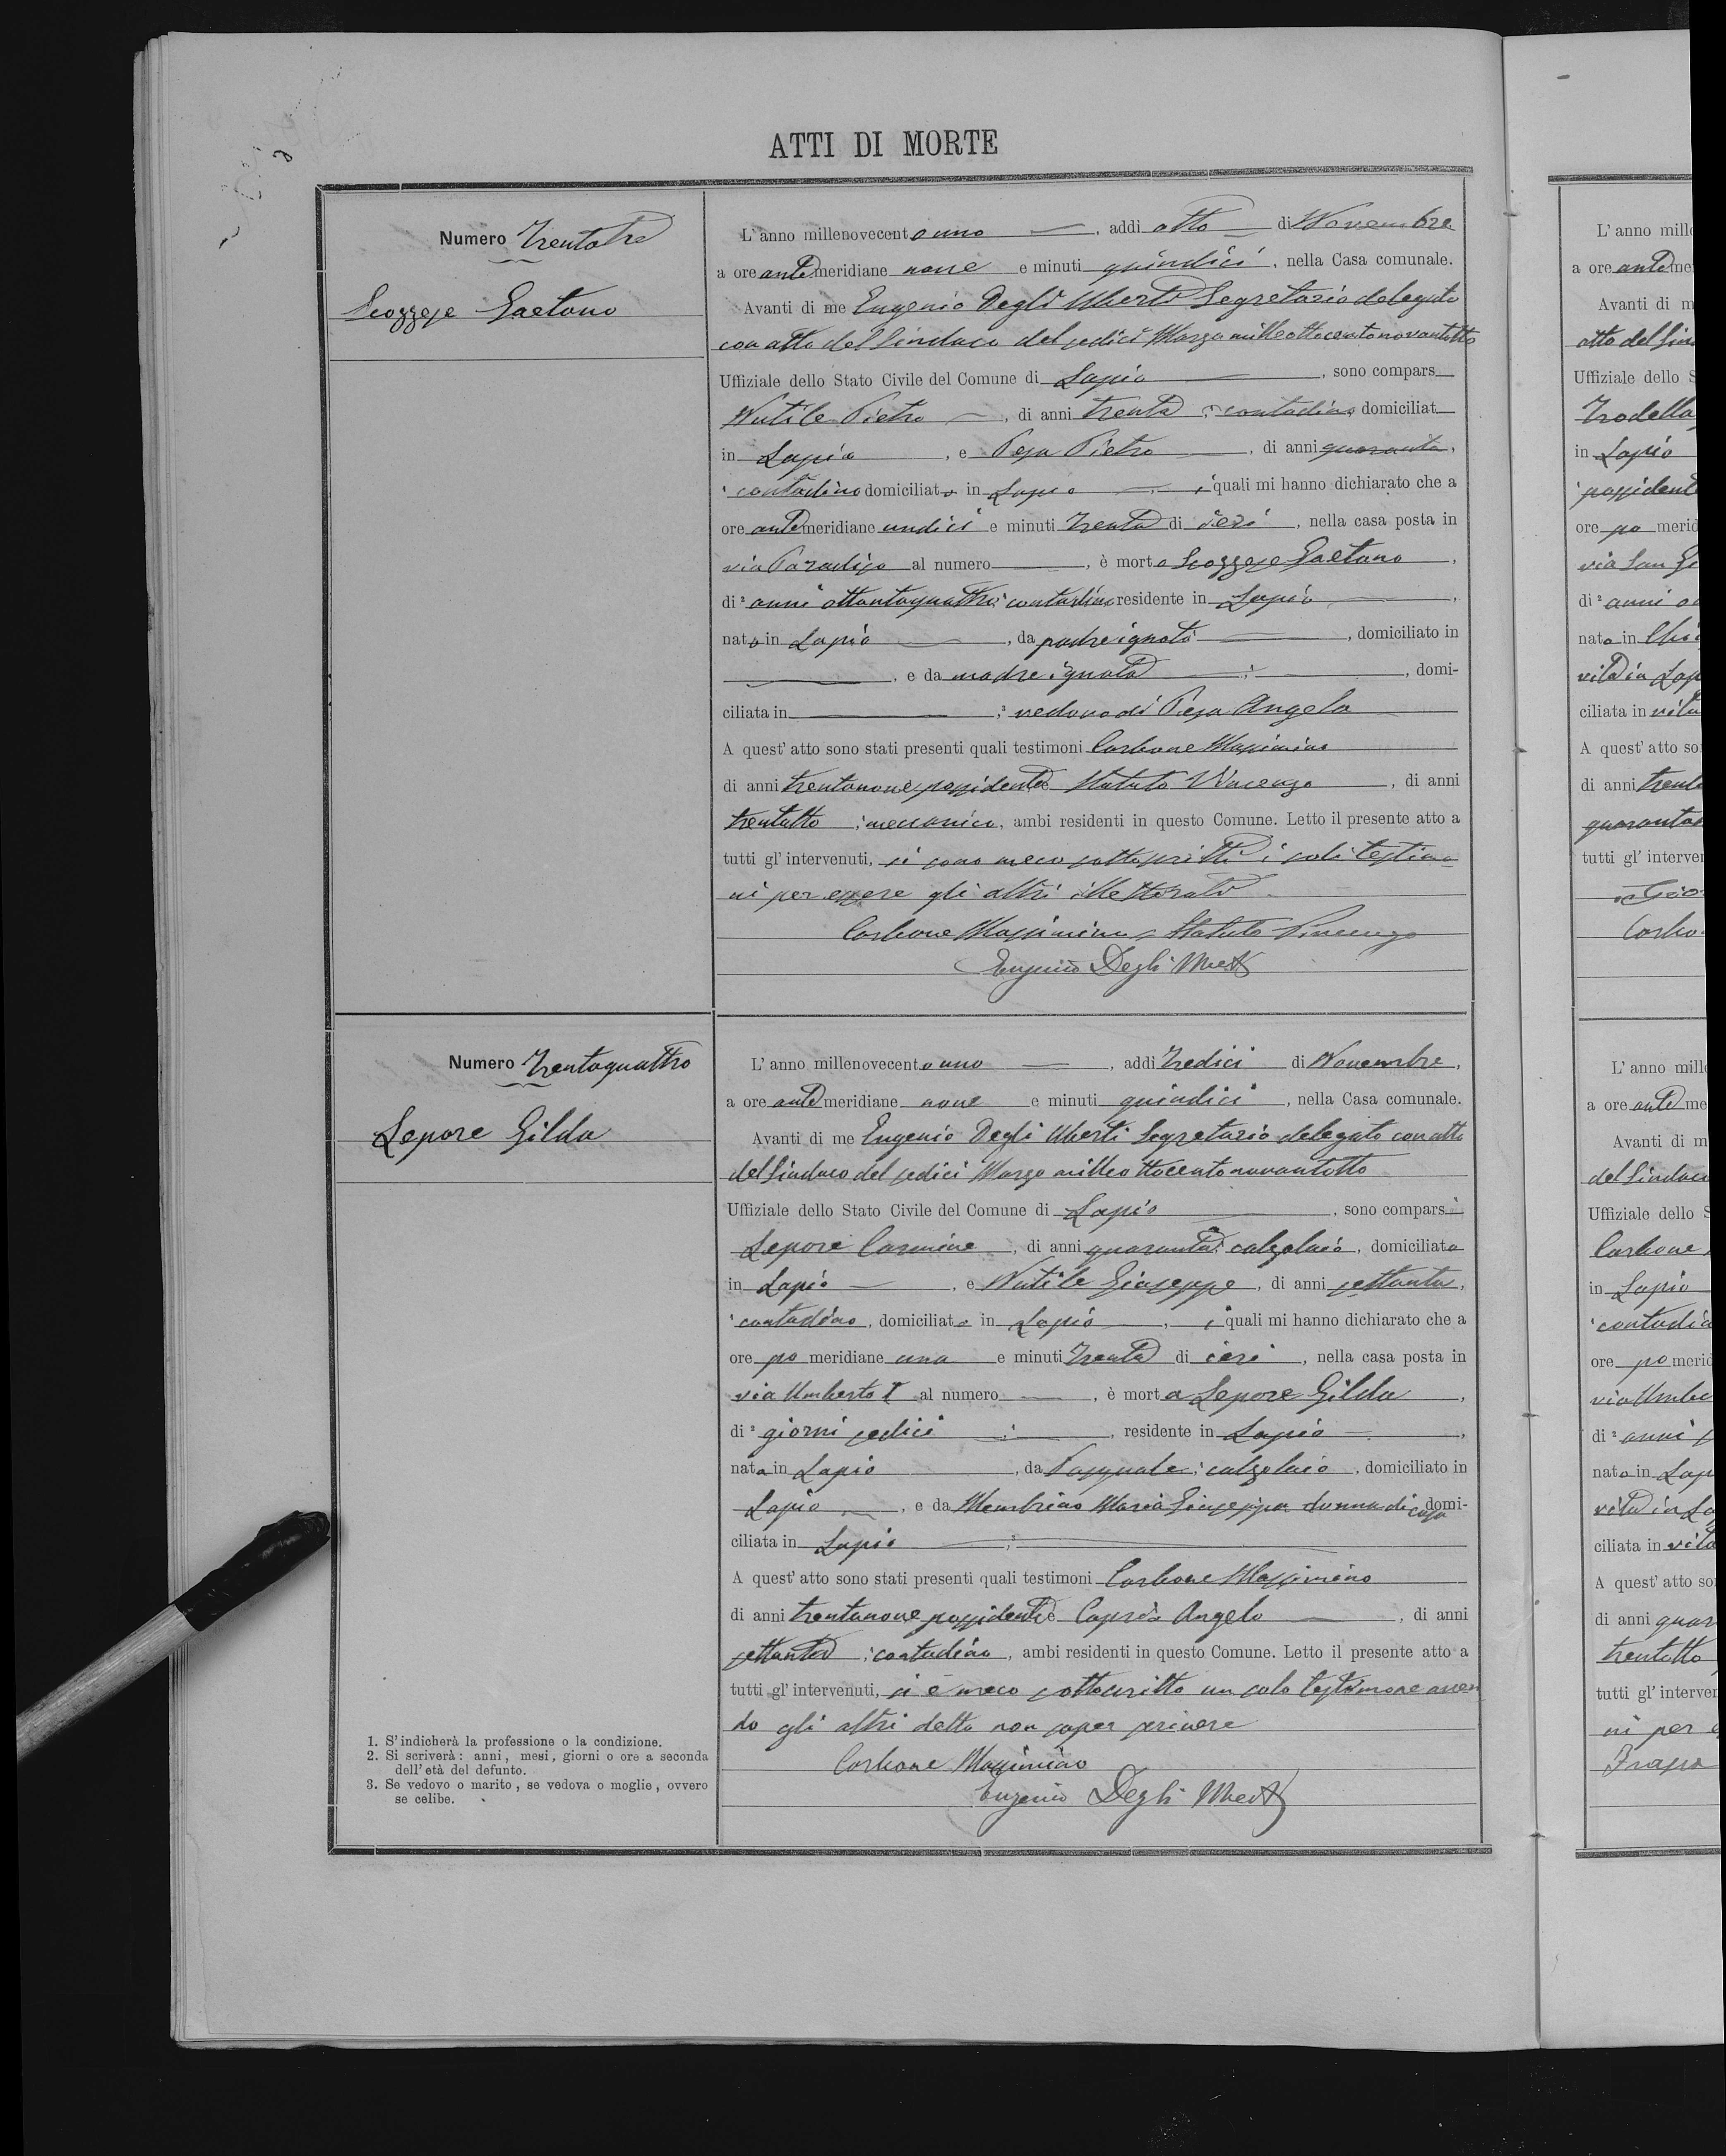 ATTI DI MORTE
Numero Trentatre
Scozzese Gaetano
L'anno millenovecento uno, addì otto di Novembre
a ore antemeridiane nove e minuti quindici, nella Casa comunale.
Avanti di me Eugenio Degli Uberti Segretario delegato
con atto del Sindaco del sedici Marzo milleottocentonovantotto
Uffiziale dello Stato Civile del Comune di Lapio, sono compars
Nutile Pietro, di anni trenta, contadino domiciliat
in Lapio, e Pepa Pietro, di anni quaranta,
contadino domiciliato in Lapio, i quali mi hanno dichiarato che a
ore antemeridiane undici e minuti trenta di ieri, nella casa posta in
via Paradiso al numero, è morto Scozzese Gaetano,
di² anni ottantaquattro, contadino residente in Lapio,
nato in Lapio, da padre ignoto, domiciliato in
, e da madre ignota, domi-
ciliata in ;³ vedovo di Angela
A quest'atto sono stati presenti quali testimoni Carbone Massimino
di anni trentanove, possidente e Statuto Vincenzo, di anni
trentotto, meccanico, ambi residenti in questo Comune. Letto il presente atto a
tutti gl'intervenuti, si sono meco sottoscritti i soli testimo
ni per essere gli altri illetterati
Carbone Massimino Statuto Vincenzo
Eugenio Degli Uberti
Numero Trentaquattro
Lepore Gilda
L'anno millenovecento uno, addì tredici di Novembre,
a ore antemeridiane nove e minuti quindici, nella Casa comunale.
Avanti di me Eugenio Degli Uberti Segretario delegato con atto
del Sindaco del sedici Marzo milleottocentonovantotto
Uffiziale dello Stato Civile del Comune di Lapio, sono comparsi
Lepore Carmine, di anni quaranta, calzolaio, domiciliato
in Lapio, e Nutile Giuseppe, di anni settanta,
¹ contadino, domiciliato in Lapio, i quali mi hanno dichiarato che a
ore pomeridiane una e minuti trenta di ieri, nella casa posta in
via Umberto I al numero, è morta Lepore Gilda,
di² giorni sedici, residente in Lapio,
nata in Lapio, da Pasquale, calzolaio, domiciliato in
Lapio, e da Membrino Maria Giuseppa donna di casa domi-
ciliata in Lapio
A quest'atto sono stati presenti quali testimoni Carbone Massimino
di anni trentanove possidente e Caprio Angelo, di anni
settanta, contadino, ambi residenti in questo Comune. Letto il presente atto a
tutti gl'intervenuti, si è meco sottoscritto un solo testimone aven
do gli altri detto non saper scrivere
Carbone Massimino
Eugenio Degli Uberti
1. S'indicherà la professione o la condizione.
2. Si scriverà: anni, mesi, giorni o ore a seconda
dell'età del defunto.
3. Se vedovo o marito, se vedova o moglie, ovvero
se celibe.
L'anno mill
a ore ante me
Avanti di m
atto del Sin
Uffiziale dello S
in Lapio
possident
ore po merid
via San
di² anni
nato in
ciliata in
A quest'atto so
di anni
tutti gl'interve
L'anno mill
a ore ante me
Avanti di m
del Sindaco
Uffiziale dello S
Carbone
in Lapio
contadi
ore po merid
via Umbe
di² anni
nato in Lap
ciliata in
A quest'atto so
di anni quar
trentotto
tutti gl'interven
ni per